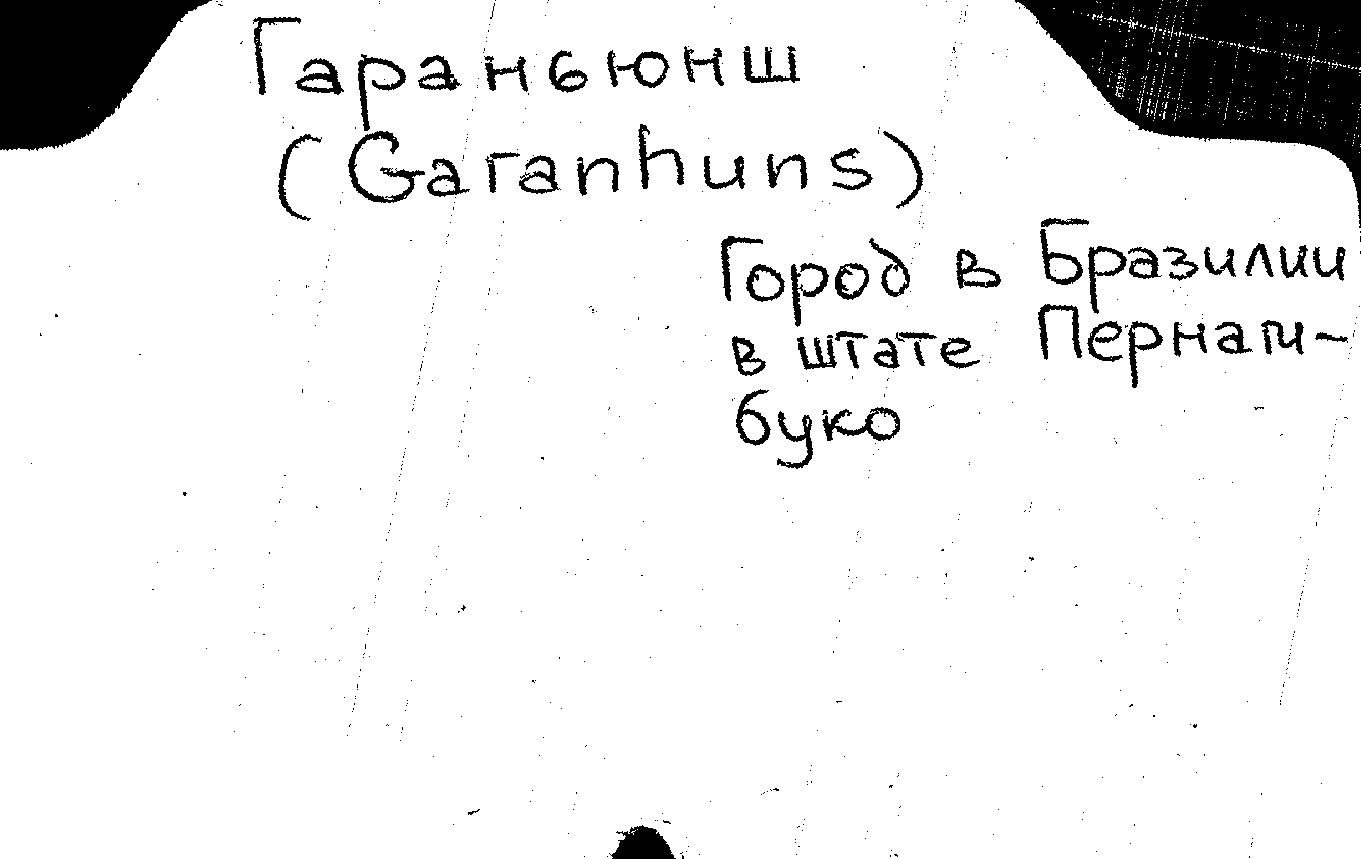 Гараньюнш
(Garanhuns)
Город в Бразилии
в штате Пернам-
буко